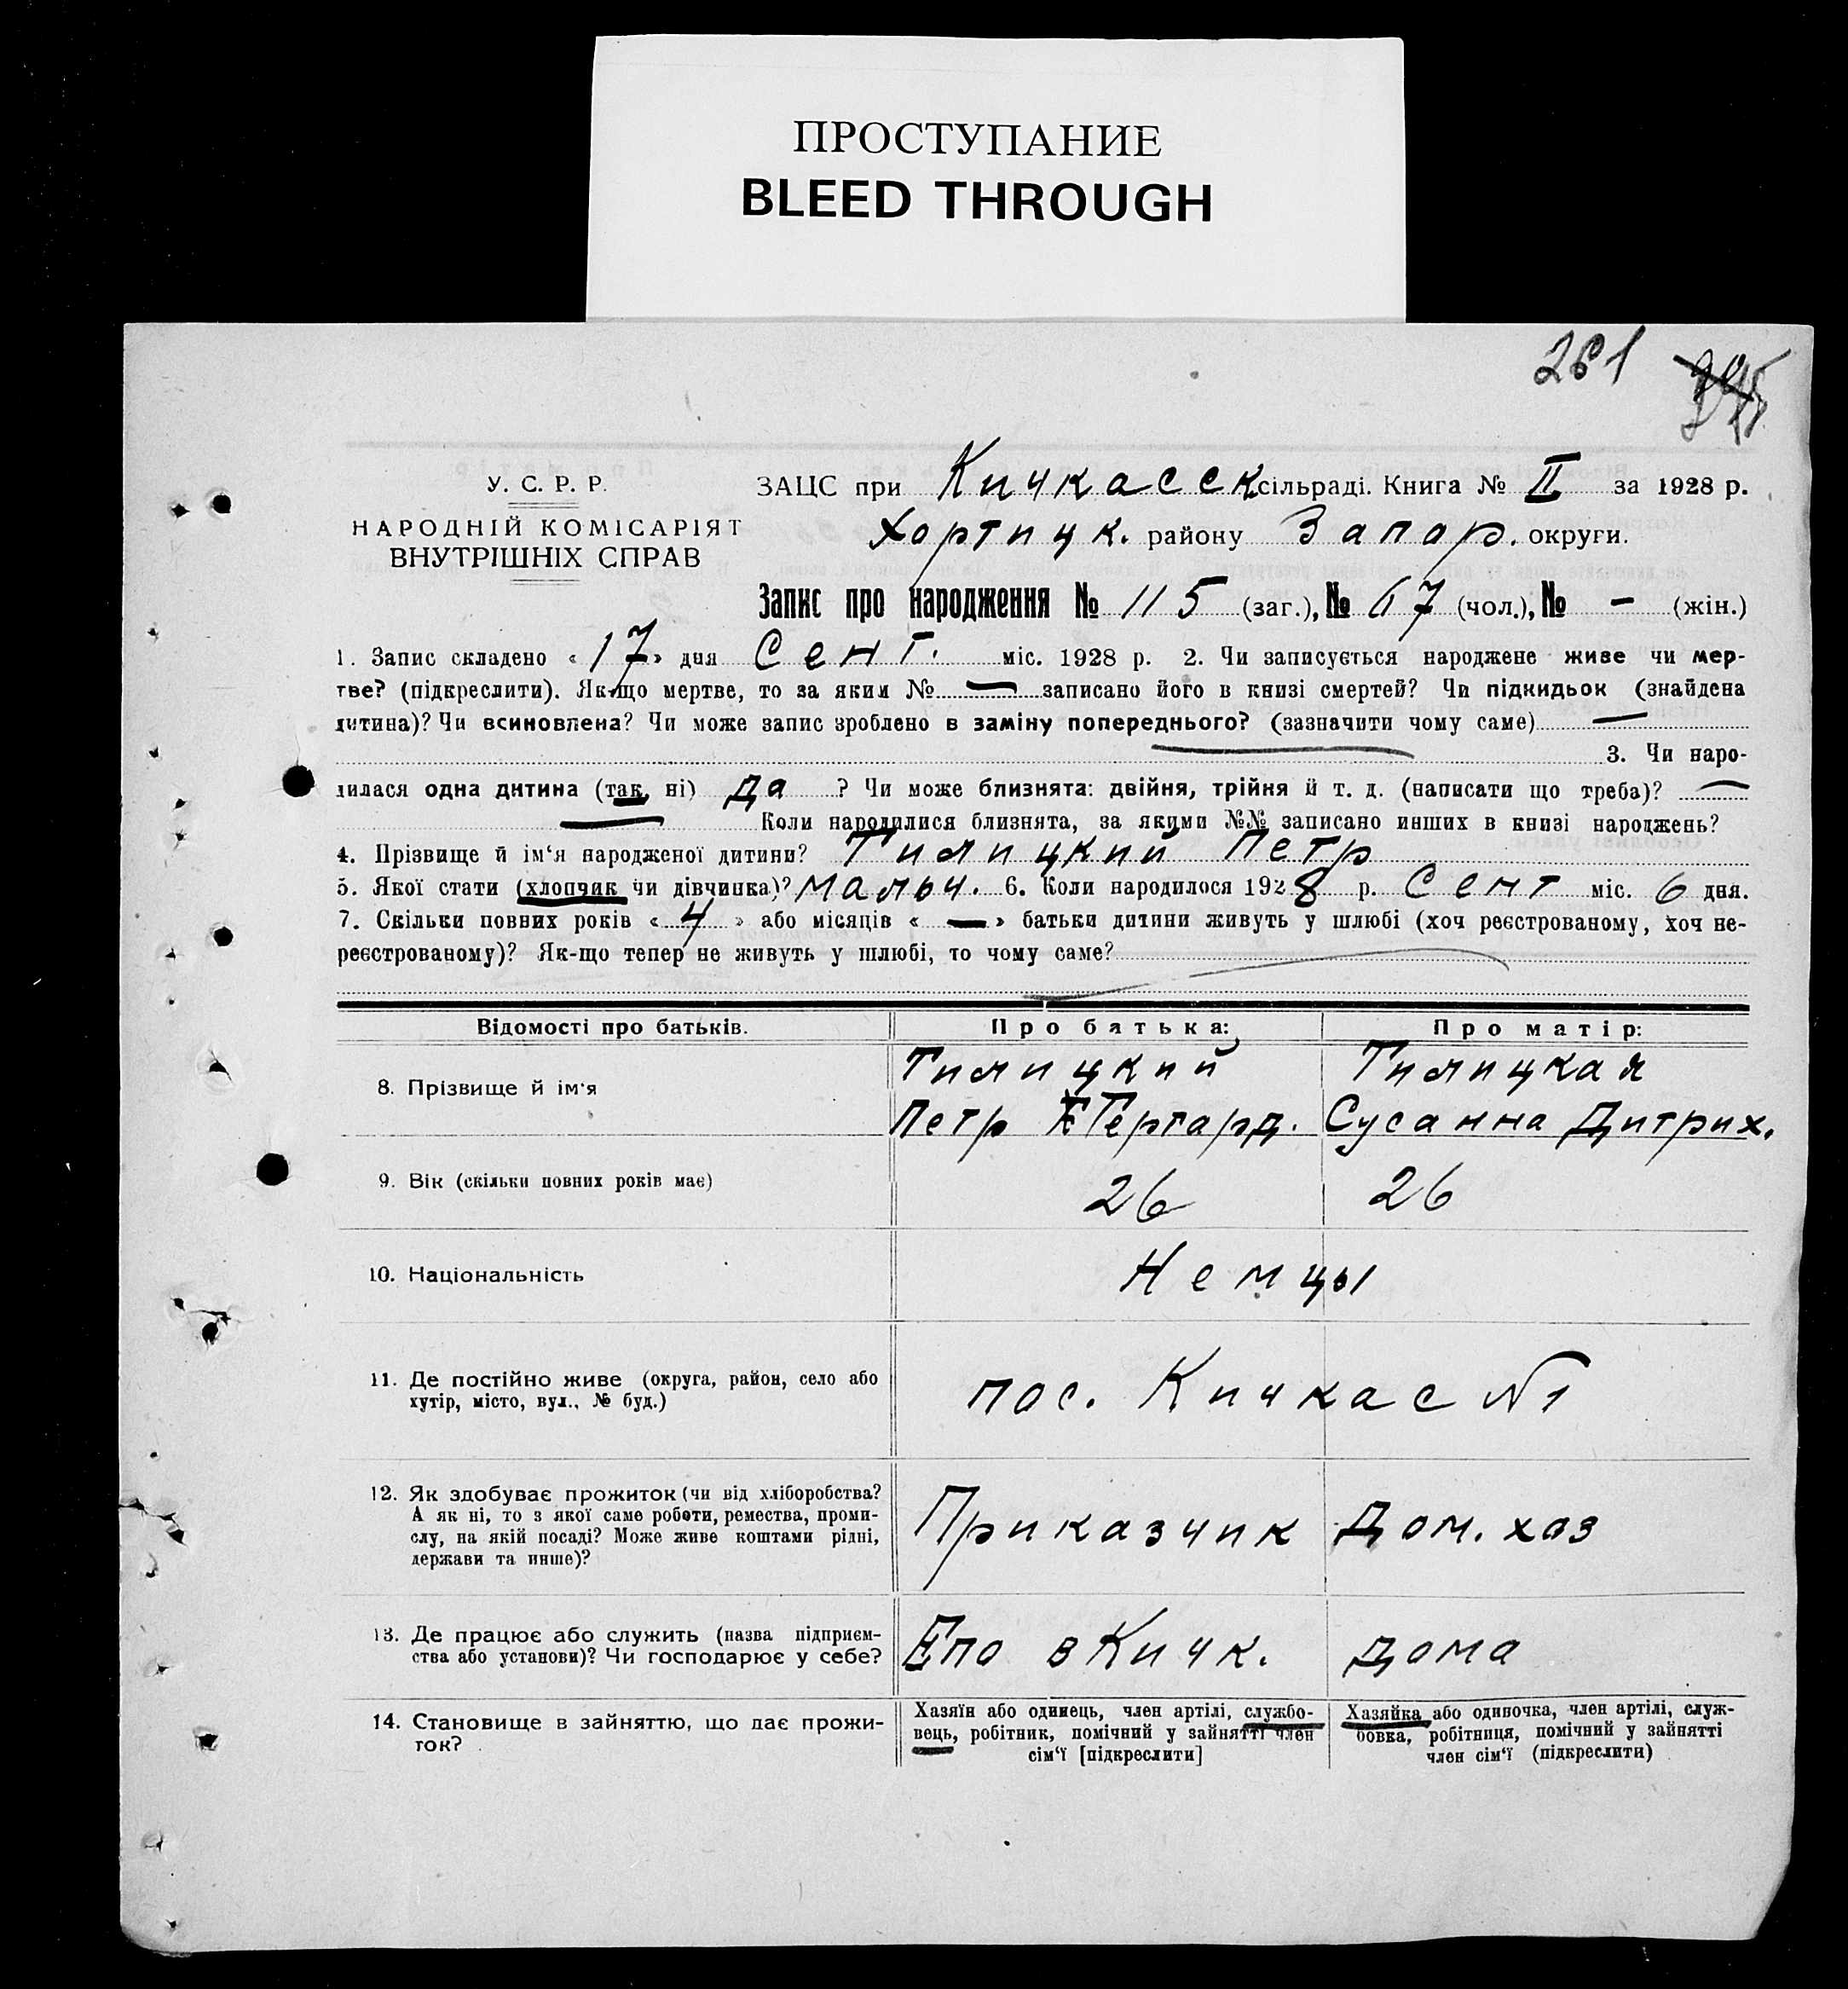 ПРОСТУПАНИЕ
BLEED THROUGH
261
У. С. Р. Р.
НАРОДНІЙ КОМІСАРІЯТ
ВНУТРІШНІХ СПРАВ
ЗАЦС при Кичкасск сільраді. Книга № II за 1928 р.
Хортицк. району Запор. округи.
Запис про народження № 115 (заг.), № 67 (чол.), № – (жін.)
1. Запис складено «17» дня Сент. міс. 1928 р. 2. Чи записується народжене живе чи мер-
тве? (підкреслити). Як-що мертве, то за яким № — записано його в книзі смертей? Чи підкидьок (знайдена
дитина)? Чи всиновлена? Чи може запис зроблено в заміну попереднього? (зазначити чому саме) —
3. Чи наро-
дилася одна дитина (так, ні) Да ? Чи може близнята: двійня, трійня й т. д. (написати що треба)? —
— Коли народилися близнята, за якими №№ записано инших в книзі народжень?
4. Прізвище й ім‘я народженої дитини? Тилицкий Петр
5. Якої стати (хлопчик чи дівчинка)? мальч. 6. Коли народилося 1928 р. Сент міс. 6 дня.
7. Скільки повних років « 4 » або місяців « — » батьки дитини живуть у шлюбі (хоч реєстрованому, хоч не-
реєстрованому)? Як-що тепер не живуть у шлюбі, то чому саме?
Відомості про батьків. Про батька: Про матір:
8. Прізвище й ім‘я Тилицкий Петр Гергард. Тилицкая Сусанна Дитрих.
9. Вік (скільки повних років має) 26 26
10. Національність Немцы
11. Де постійно живе (округа, район, село або
хутір, місто, вул., № буд.) пос. Кичкас №1
12. Як здобуває прожиток (чи від хліборобства?
А як ні, то з якої саме роботи, ремества, проми-
слу, на якій посаді? Може живе коштами рідні,
держави та инше)? Приказчик Дом. хоз
13. Де працює або служить (назва підприєм-
ства або установи)? Чи господарює у себе? Епо в Кичк. дома
14. Становище в зайняттю, що дає прожи-
ток?
Хазяїн або одинець, член артілі, службо-
вець, робітник, помічний у зайнятті член
сім‘ї [підкреслити]
Хазяйка або одиночка, член артілі, служ-
бовка, робітниця, помічний у зайнятті
член сім‘ї (підкреслити)